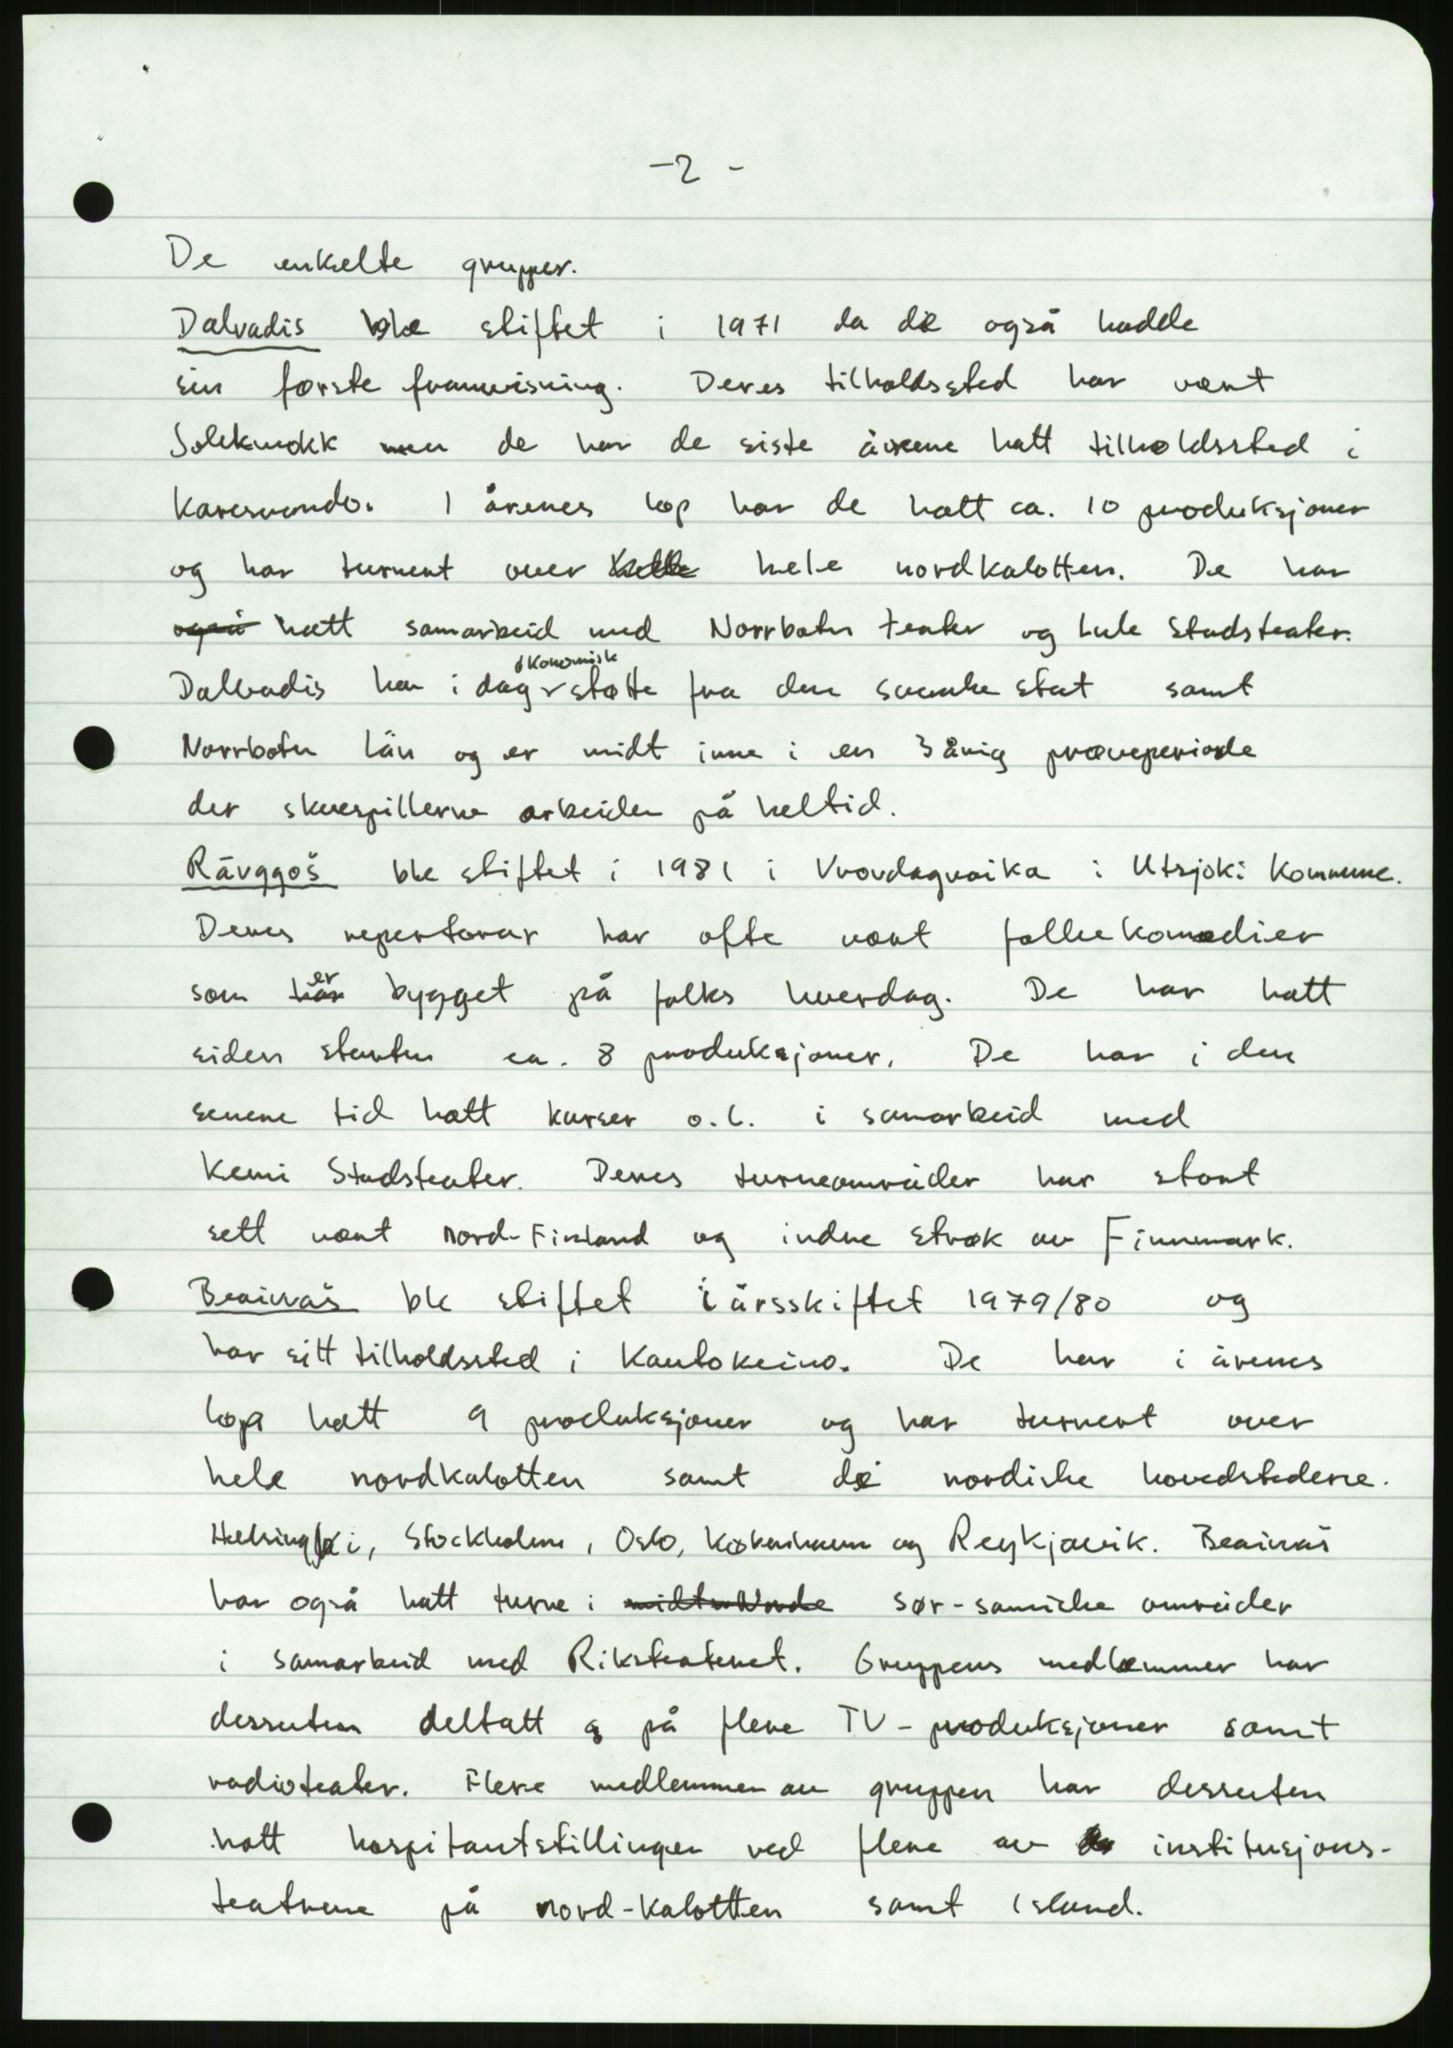 -2-
De enkelte grupper.
Dalvadis ble stiftet i 1971 da de også hadde
sin første framvisning. Deres tilholdssted har vært
Jokkmokk men de har de siste årene hatt tilholdssted i
Karesuando. I årenes løp har de hatt ca. 10 produksjoner
og har turnert over hele nordkalotten. De har
også hatt samarbeid med Norrbotn teater og Lule Stadsteater.
Dalvadis har i dag økonomisk støtte fra den svenske stat samt
Norrbotn län og er midt inne i en 3 årig prøveperiode
der skuespillerne arbeider på heltid.
Rávggoš ble stiftet i 1981 i Vuovdaguoika i Utsjoki Kommune.
Deres repertoar har ofte vært folkekomedier
som er bygget på folks hverdag. De har hatt
siden starten ca. 8 produksjoner. De har i den
senere tid hatt kurser o.l. i samarbeid med
Kemi Stadsteater. Deres turneområder har stort
sett vært nord-Finland og indre strøk av Finnmark.
Beaivváš ble stiftet i årsskiftet 1979/80 og
har sitt tilholdssted i Kautokeino. De har i årenes
løp hatt 9 produksjoner og har turnert over
hele nordkalotten samt de nordiske hovedstedene.
Helsingki, Stockholm, Oslo, København og Reykjavik. Beaivváš
har også hatt turne i sør-samiske områder
i samarbeid med Riksteateret. Gruppens medlemmer har
dessuten deltatt på flere TV-produksjoner samt
radioteater. Flere medlemmer av gruppen har dessuten
hatt hospitantstillinger ved flere av institusjons-
teatrene på nord-kalotten samt Island.